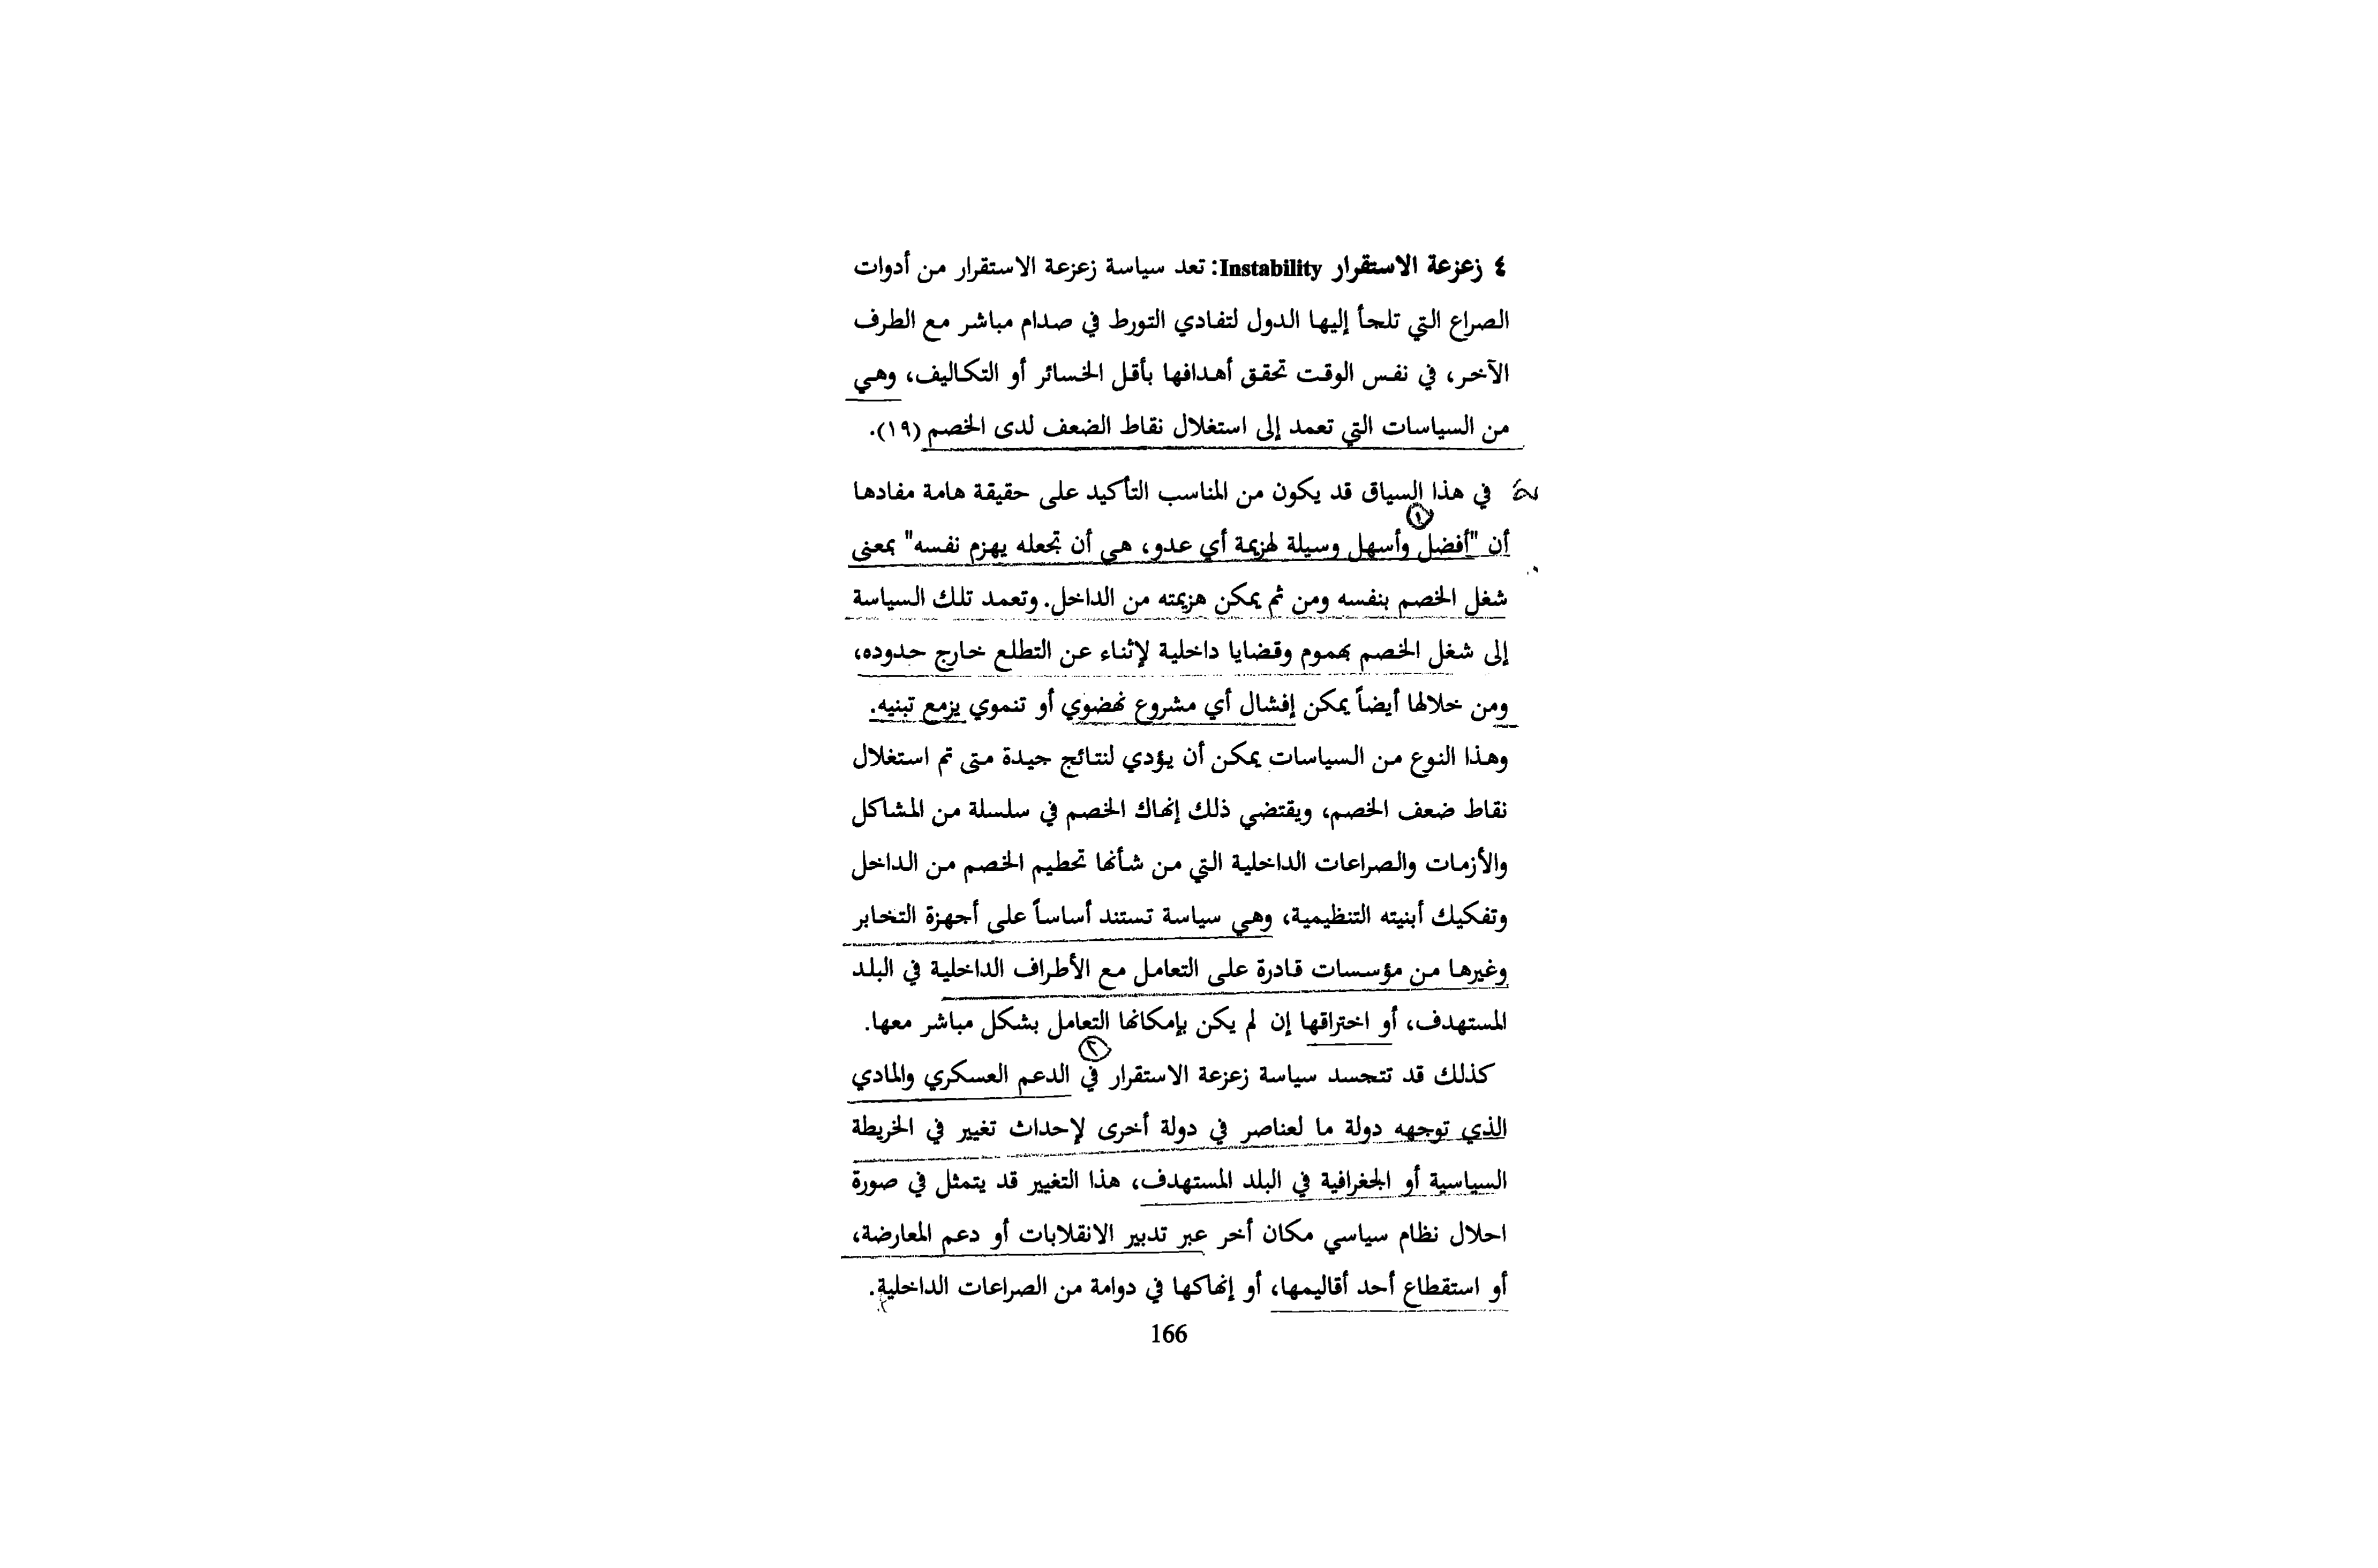 ٤ زعزعة الاستقرار Instability: تعد سياسة زعزعة الاستقرار من أدوات
الصراع التي تلجأ إليها الدول لتفادي التورط في صدام مباشر مع الطرف
الآخر، في نفس الوقت تحقق أهدافها بأقل الخسائر أو التكاليف، وهي
من السياسات التي تعمد إلى استغلال نقاط الضعف لدى الخصم (١٩).
في هذا السياق قد يكون من المناسب التأكيد على حقيقة هامة مفادها
١
أن "أفضل وأسهل وسيلة لهزيمة أي عدو، هي أن تجعله يهزم نفسه" بمعنى
شغل الخصم بنفسه ومن ثم يمكن هزيمته من الداخل. وتعمد تلك السياسة
إلى شغل الخصم بهموم وقضايا داخلية لإثناء عن التطلع خارج حدوده،
ومن خلالها أيضاً يمكن إفشال أي مشروع نهضوي أو تنموي يزمع تبنيه.
وهذا النوع من السياسات يمكن أن يؤدي لنتائج جيدة متى تم استغلال
نقاط ضعف الخصم، ويقتضي ذلك إنهاك الخصم في سلسلة من المشاكل
والأزمات والصراعات الداخلية التي من شأنها تحطيم الخصم من الداخل
وتفكيك أبنيته التنظيمية، وهي سياسة تستند أساساً على أجهزة التخابر
وغيرها من مؤسسات قادرة على التعامل مع الأطراف الداخلية في البلد
المستهدف، أو اختراقها إن لم يكن بإمكانها التعامل بشكل مباشر معها.
٢
كذلك قد تتجسد سياسة زعزعة الاستقرار في الدعم العسكري والمادي
الذي توجهه دولة ما لعناصر في دولة أخرى لإحداث تغيير في الخريطة
السياسية أو الجغرافية في البلد المستهدف، هذا التغيير قد يتمثل في صورة
احلال نظام سياسي مكان أخر عبر تدبير الانقلابات أو دعم المعارضة،
أو استقطاع أحد أقاليمها، أو إنهاكها في دوامة من الصراعات الداخلية.
166